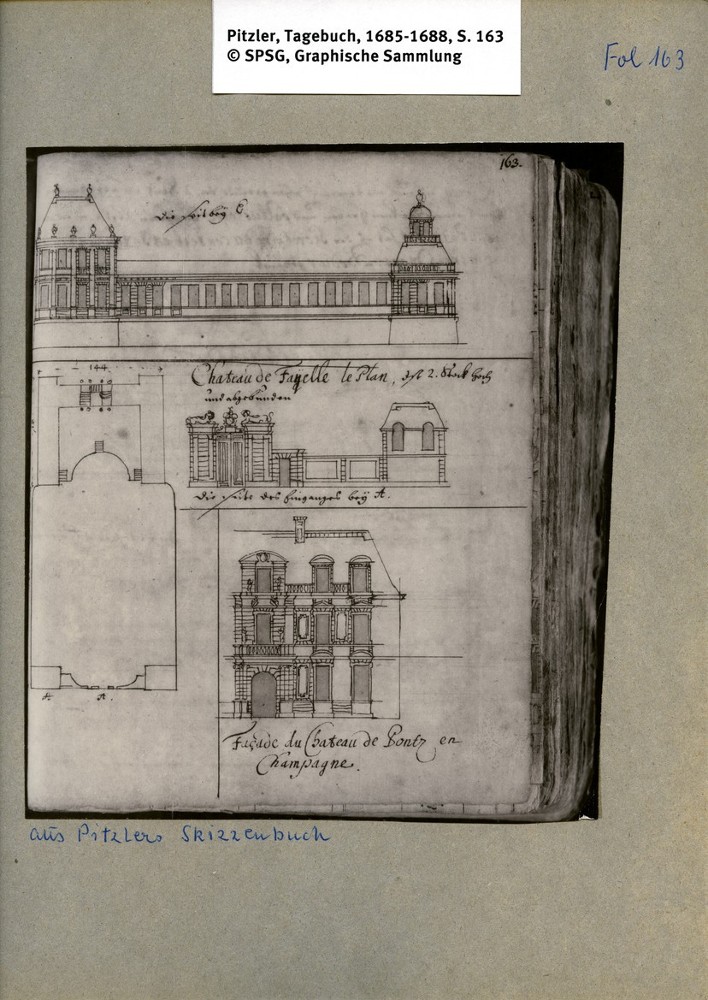 Pitzler, Tagebuch, 1685-1688, S. 163
© SPSG, Graphische Sammlung
Fol 163
163.
Die seit bey C.
144
Chateau de Fayelle le Plan, ist 2. Stock hoch
und abgebunden
Die seite des Einganges bey A.
A.
Façade du Chateau de Pontz en
Champagne.
aus Pitzlers Skizzenbuch